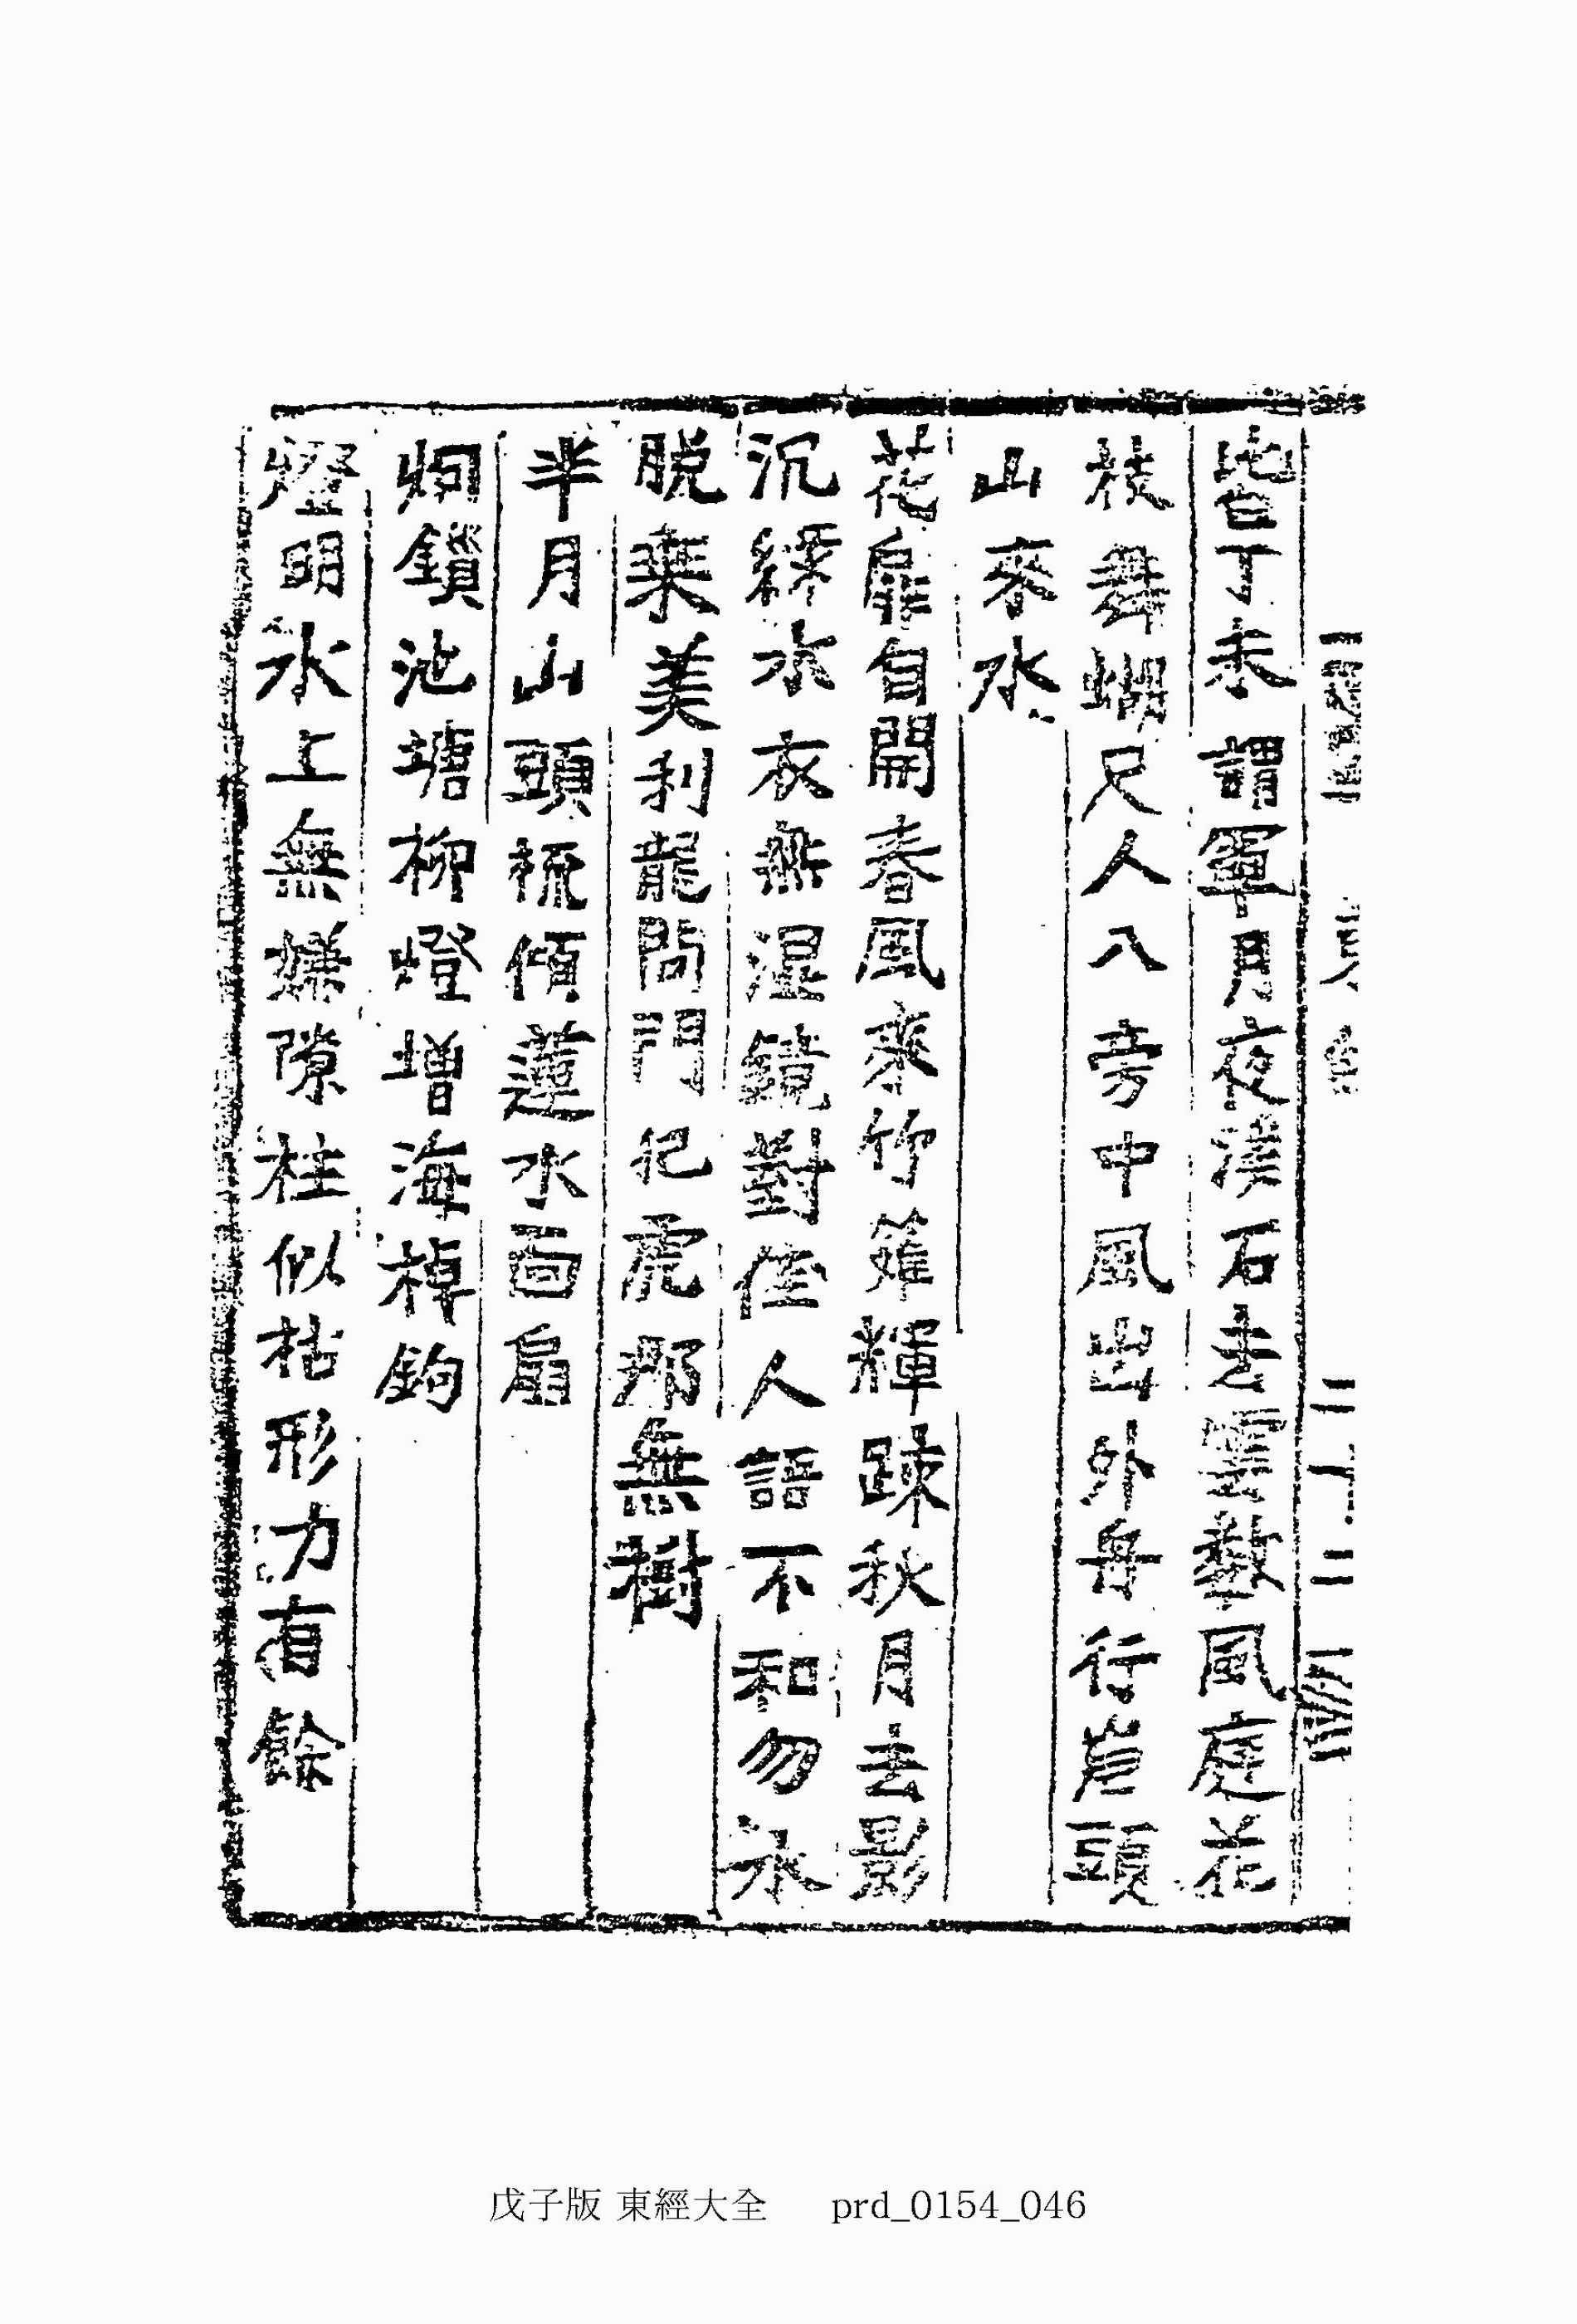 皆丁未謂軍月夜溪石去雲數風庭花
枝舞蝴尺人八旁中風出外舟行岸頭
山來水
花扉自開春風來竹籬輝疎秋月去影
沉綠水衣無濕鏡對佳人語不和勿水
脫乘美利龍問門犯虎那無樹
半月山頭梳傾蓮水面扇
烟鎖池塘柳燈增海棹鉤
燈明水上無嫌隙柱似枯形力有餘
戊子版 東經大全 prd_0154_046